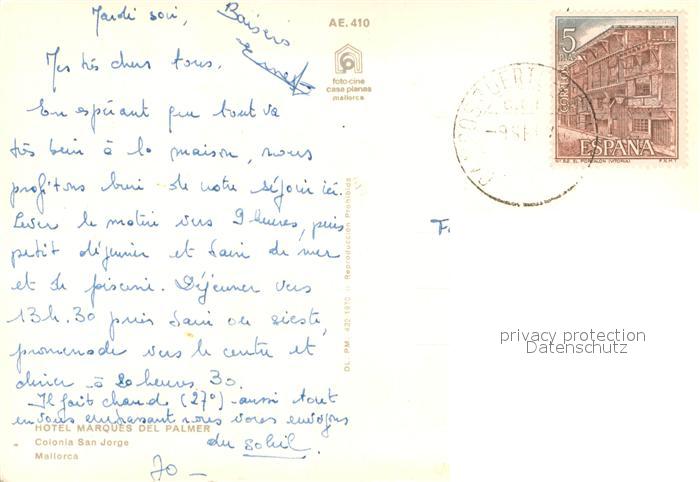 Mardi soir,
Baisers
AE.410
foto-cine
casa planas
mallorca
Mes très chers tous,
En espérant que tout va
très bien à la maison, nous
profitons bien de notre séjour ici.
Lever le matin vers 9 heures, puis
petit déjeuner et bain de mer
et de piscine. Déjeuner vers
13h.30 puis bain ou sieste,
promenade vers le centre et
diner à 20 heures 30.
Il fait chaud (27°) aussi tout
en vous embrassant nous vous envoyons
du soleil.
HOTEL MARQUES DEL PALMER
Colonia San Jorge
Mallorca
70 _
DL. P.M. 422-1970 - Reproducción Prohibida
F.
5
PTA
CORREOS
ESPAÑA
EL PORTALON (VITORIA)
F.N.M.T.
privacy protection
Datenschutz